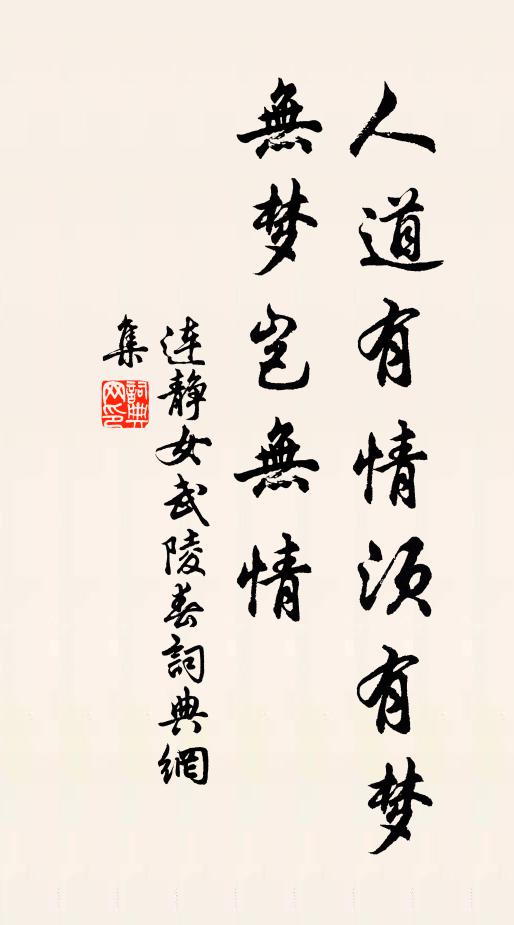 人道有情须有梦
無梦岂無情
连静女武陵春詞典網
集
詞典
网印